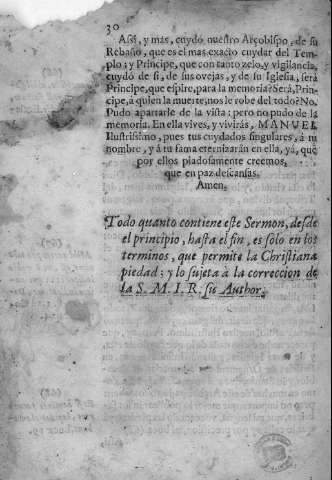 30
Assi, y mas, cuydò nuestro Arçobispo, de su
Rebaño, que es el mas exacto cuydar del Tem-
plo; y Principe, que con tanto zelo, y vigilancia,
cuydò de si, de sus ovejas, y de su Iglesia, serà
Principe, que espire, para la memoria? Serà, Prin-
cipe, à quien la muerte, nos le robe del todo? No.
Pudo apartarle de la vista; pero no pudo de la
memoria. En ella vives, y vivirás, MANUEL
Ilustrissimo, pues tus cuydados singulares, à tu
nombre, y à tu fama eternizarán en ella, yà, que
por ellos piadosamente creemos,
que en paz descansas.
Amen.
Todo quanto contiene este Sermon, desde
el principio, hasta el fin, es solo en los
terminos, que permite la Christiana
piedad; y lo sujeta à la correccion de
la S. M. I. R. su Author.